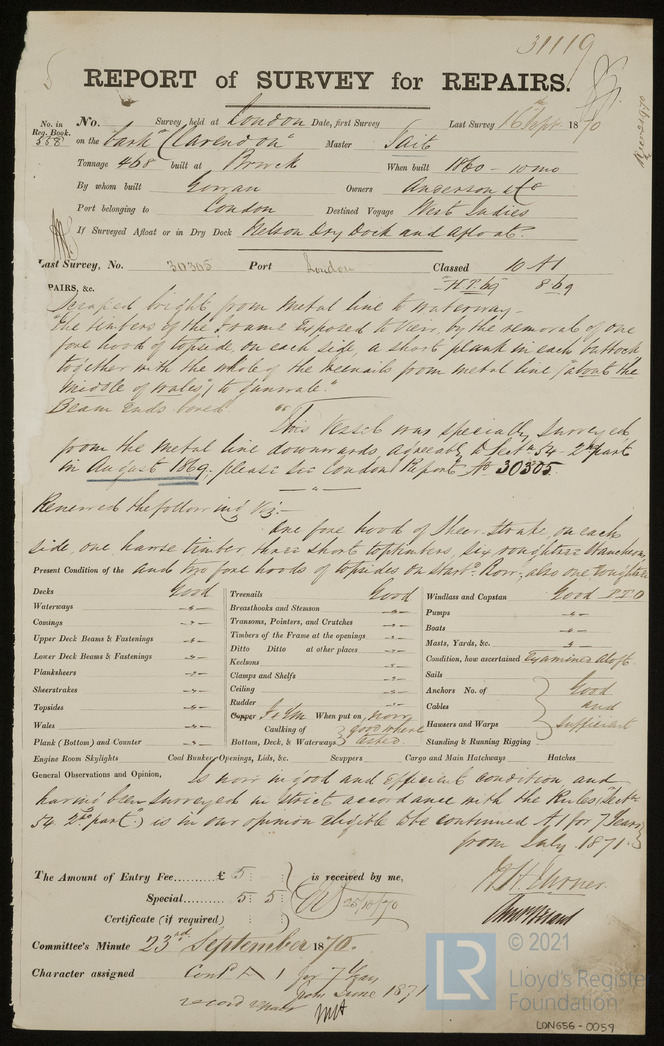 31119
5
REPORT of SURVEY for REPAIRS.
No. in Reg. Book. 558
No. Survey held at London Date, first Survey Last Survey 16th Sept. 1870
on the bark "Clarendon" Master Tait
Tonnage 468 built at Berwick When built 1860 - 10 mo
By whom built Gowan Owners Anderson & Co
Port belonging to London Destined Voyage West Indies
If Surveyed Afloat or in Dry Dock Nelson Dry Dock and afloat.
Last Survey, No. 30305 Port London Classed 10 A1
8 69
PAIRS, &c.
Scraped bright from metal line to waterway -
The timbers of the Frame exposed to view, by the removal of one
fore hood of topside, on each side, a short plank in each buttock
together with the whole of the treenails from metal line "about the
middle of wales", to gunwale."
Beam ends bored.
This Vessel was specially surveyed
from the metal line downwards, agreeably to Sectn 54 - 2nd part
in August 1869, please see London Report No 30305.
Renewed the following Viz:-
One fore hood of Sheer-strake, on each
side, one hawse timber, three short toptimbers, six roughtree stanchions,
Present Condition of the and two fore hoods of topsides on starbd. Bow, also one roughtree
Decks Good Treenails Good Windlass and Capstan Good P.T.O
Waterways -"- Breasthooks and Stemson -"- Pumps -"-
Comings -"- Transoms, Pointers, and Crutches -"- Boats -"-
Upper Deck Beams & Fastenings -"- Timbers of the Frame at the openings -"- Masts, Yards, &c. -"-
Lower Deck Beams & Fastenings -"- Ditto Ditto at other places -"- Condition, how ascertained Examined Aloft.
Planksheers -"- Keelsons -"- Sails
Sheerstrakes -"- Clamps and Shelfs -"- Anchors No. of Good
Topsides -"- Ceiling -"- Cables and
Wales -"- Rudder -"- Hausers and Warps sufficient
Copper F & YM When put on, now
Plank (Bottom) and Counter -"- Caulking of Bottom, Deck, & Waterways good where tested. Standing & Running Rigging
Engine Room Skylights Coal Bunker Openings, Lids, &c. Scuppers Cargo and Main Hatchways Hatches
General Observations and Opinion, Is now in good and efficient condition and
having been surveyed in strict accordance with the Rules (Sectn
54 2nd part.) is in our opinion eligible to be continued A1 for 7 Years
from July 1871.
The Amount of Entry Fee......... £ 5 : : is received by me,
Special......... 5 : 5 : 25/10/70
Certificate (if required)
Committee's Minute 23rd September 1870.
Character assigned Contd A 1 for 7 Years
from June 1871
© 2021
LR
Lloyd's Register
Foundation
LON656-0059